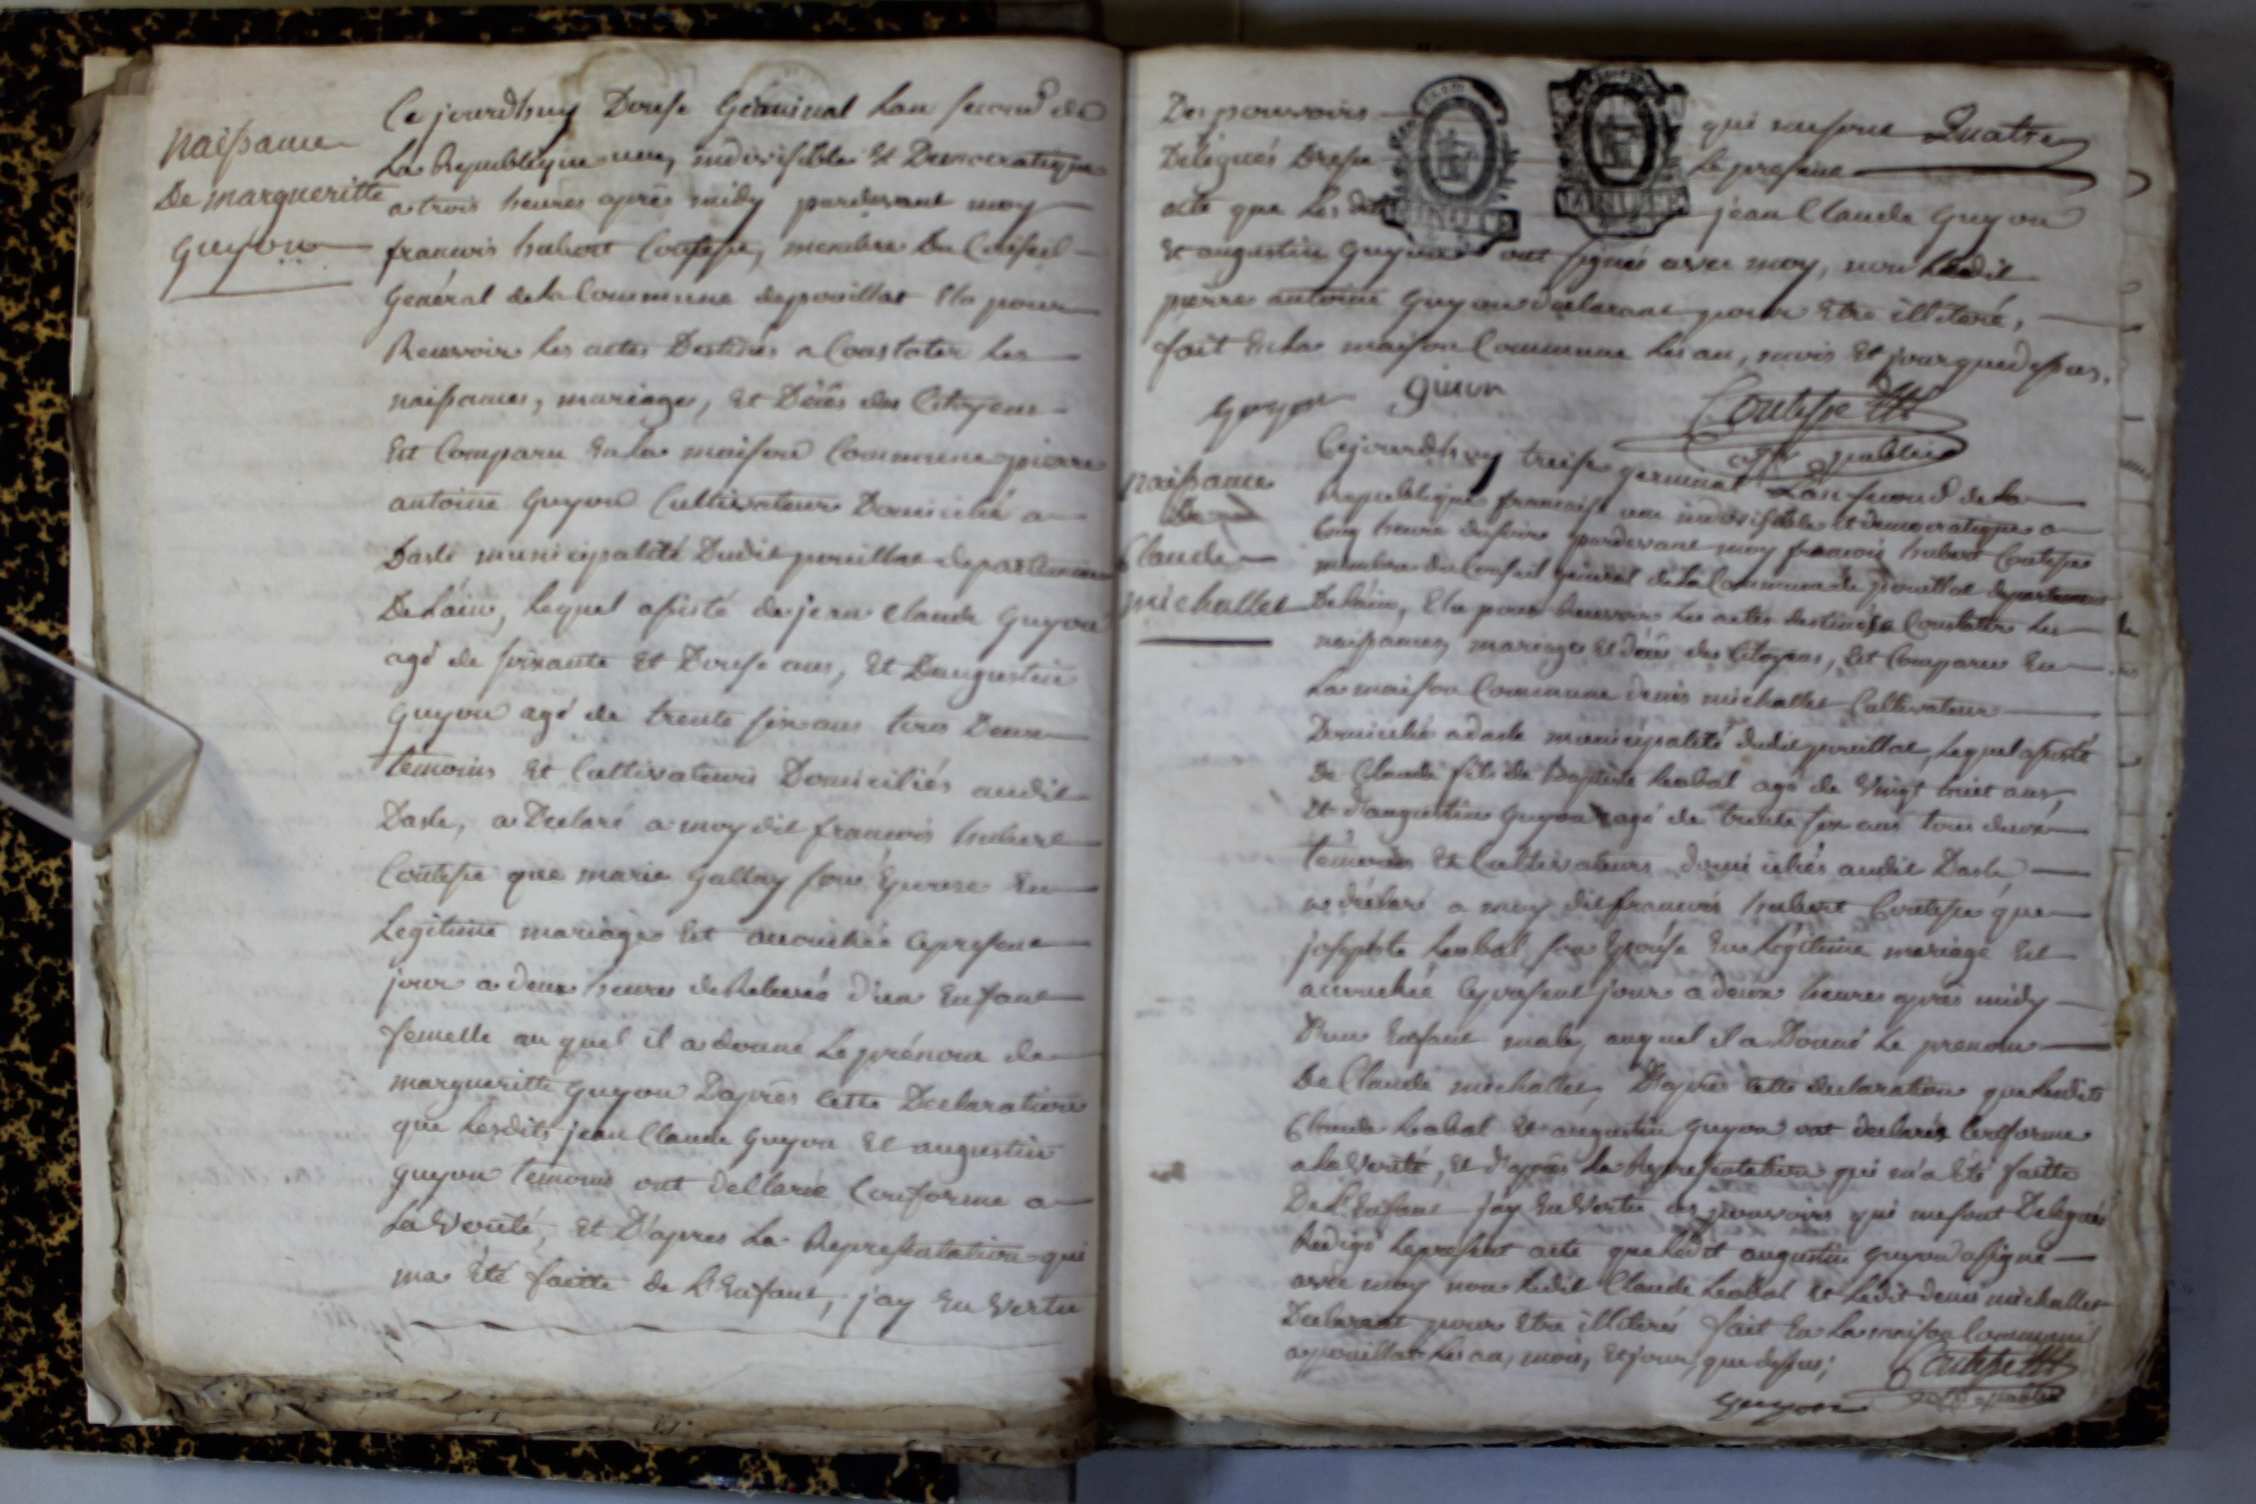 Naissance
De margueritte
guyon
Ce jourdhuy Douse Germinal Lan second de
La Republique une, indivisible et Democratique
a trois heures aprés midy pardevant moy
francois hubert Coutisse, membre Du Conseil
Général de la Commune de pouillat Elu pour
Recevoir Les actes Destinés a Constater Les
naissances, mariages, et Décès des Citoyens
Est Comparu En la maison Commune pierre
antoine guyon Cultivateur Domicilié a
Dasle municipalité Dudit pouillat departement
De Lain, Lequel assisté de jean Claude Guyon
agé de soixante et Douse ans, et Daugustin
Guyon agé de trente six ans tous Deux
temoins et Cultivateurs Domiciliés audit
Dasle, a Declaré a moy dit francois hubert
Coutisse que marie gallay son Epouse En
Légitime mariage Est accouchée Ce present
jour a deux heures de Relevée d'un Enfant
femelle au quel il a donné Le prénom de
margueritte guyon D'aprés Cette Declaration
que Lesdits jean Claude Guyon et augustin
guyon temoins ont dellaré Conforme a
La Verité, et D'apres La Representation qui
ma été faitte de L'Enfant, jay En Vertu
Des pouvoirs qui me sont Quatre
Délégués Dressé Le present
acte que Les dits jean Claude Guyon
et augustin Guyon ont signés avec moy, non Ledit
pierre antoine Guyon declarant pour Etre illiteré,
fait En La maison Commune Les an, mois et jour que dessus.
guyon guion Coutisse
off. public
Naissance
De
Claude
michallet
Cejourdhuy treise germinal Lan second de La
Republique francaise une indivisible et democratique a
Cinq heure du soir pardevant moy francois hubert Coutisse
membre du Conseil général de La Commune de pouillat departement
De Lain, Elu pour Recevoir Les actes destinés a Constater Les
naissances, mariages et décès des Citoyens, Est Comparu En
La maison Commune denis michallet Cultivateur
Domicilié a dasle municipalité dudit pouillat, Lequel assisté
De Claude fils de Baptiste Leabal agé de Vingt huit ans,
et d'augustin Guyon agé de trente six ans tous deux
témoins et Cultivateurs domiciliés audit Dasle,
a déclaré a moy dit francois hubert Coutisse que
josephte Leabal son Epouse En Légitime mariage Est
accouchée Ce present jour a deux heures aprés midy
D'un Enfant male, auquel il a Donné Le prenom
De Claude michallet, D'aprés Cette declaration que Lesdits
Claude Leabal et augustin Guyon ont declarés Conforme
a La Verité, et d'aprés La Representation qui m'a été faitte
De L'Enfant jay En Vertu des pouvoirs qui me sont Delegués
Redigé Le present acte que Ledit augustin Guyon a signé
avec moy non Ledit Claude Leabal et Ledit denis michallet
Declarant pour Etre illiterés fait En La maison Commune
a pouillat Les an, mois, et jour que dessus;
Coutisse
guyon off. public